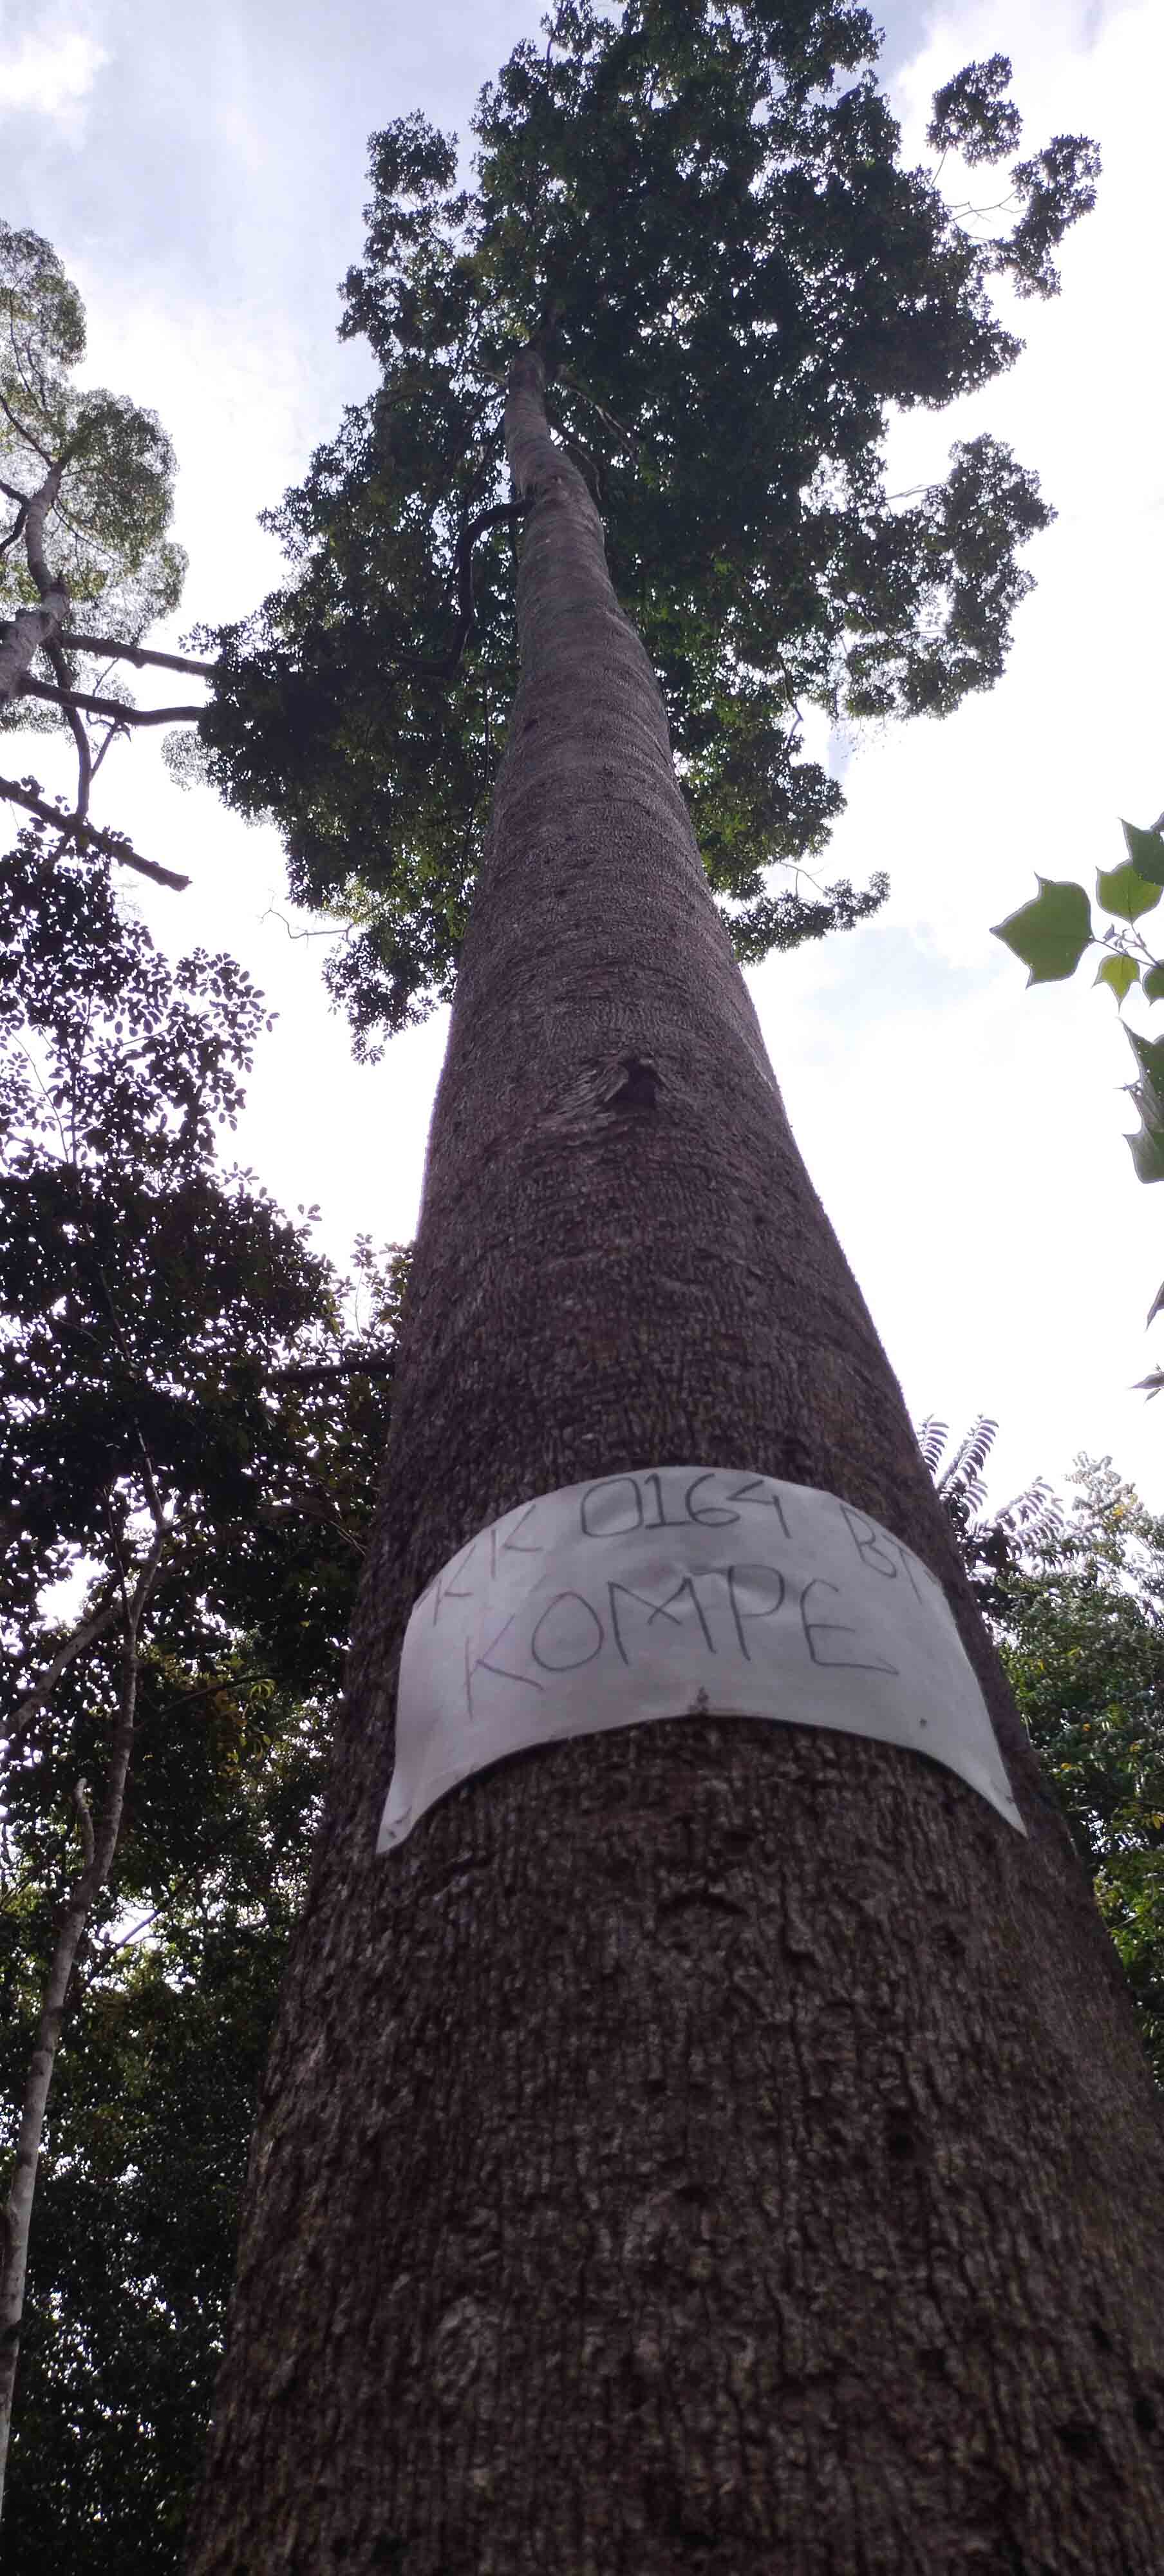 KK 0164 BT
KOMPE